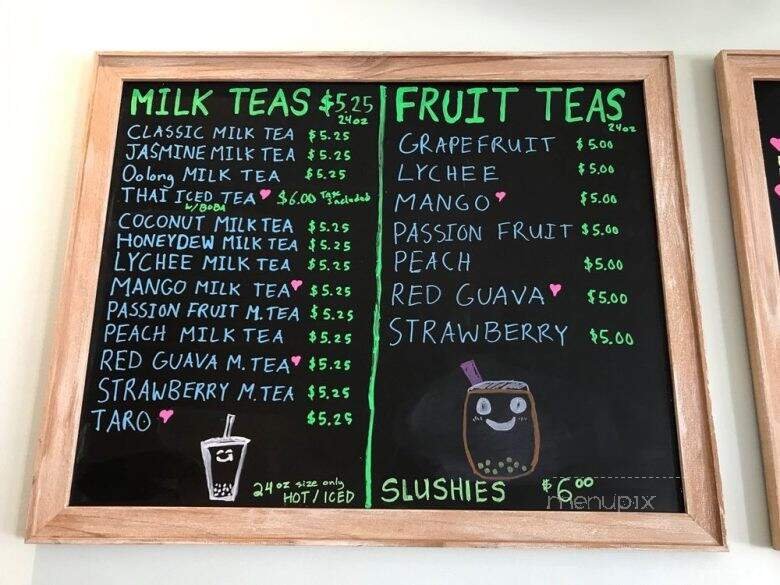 MILK TEAS $5.25
24oz
CLASSIC MILK TEA $5.25
JASMINE MILK TEA $5.25
Oolong MILK TEA $5.25
THAI ICED TEA $6.00 Tax Included
W/BOBA
COCONUT MILK TEA $5.25
HONEYDEW MILK TEA $5.25
LYCHEE MILK TEA $5.25
MANGO MILK TEA $5.25
PASSION FRUIT M.TEA $5.25
PEACH MILK TEA $5.25
RED GUAVA M.TEA $5.25
STRAWBERRY M.TEA $5.25
TARO $5.25
24oz size only
HOT/ICED
FRUIT TEAS
24oz
GRAPEFRUIT $5.00
LYCHEE $5.00
MANGO $5.00
PASSION FRUIT $5.00
PEACH $5.00
RED GUAVA $5.00
STRAWBERRY $5.00
SLUSHIES $6.00
menupix